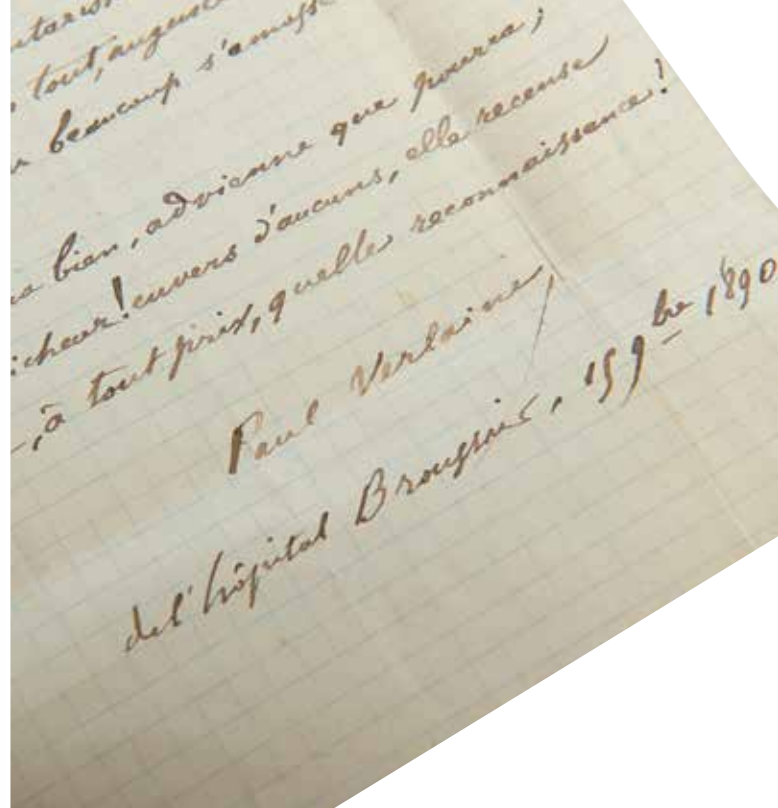 tout, auguste
beaucoup s'amasse
bien, advienne que pourra ;
envers d'aucuns, elle recense
à tout prix, quelle reconnaissance !
Paul Verlaine,
de l'hôpital Broussais, 15 9bre 1890